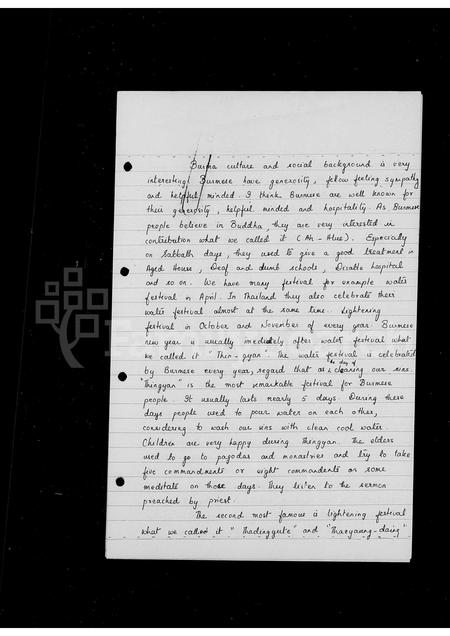 Burma culture and social background is very
interesting. Burmese have generosity, felow feeling, sympathy
and helpful minded. I think Burmese are well known for
their generosity, helpful minded and hospitality. As Burmese
people believe in Buddha, they are very interested in
contribution what we called it (Ah-Hlus). Especially
on Sabbath days, they used to give a good treatment in
Aged House, Deaf and dumb schools, Disable hospital
and so on. We have many festival for example water
festival in April. In Thailand they also celebrate their
water festival almost at the same time. Lightening
festival in October and November of every year. Burmese
new year is usually immediely after water festival what
we called it "Thin-gyan". The water festival is celebrated
by Burmese every year, regard that as the day of cleaning our sins.
"Thingyan" is the most remarkable festival for Burmese
people. It usually lasts nearly 5 days. During these
days people used to pour water on each other,
considering to wash our sins with clean cool water.
Children are very happy during Thingyan. The elders
used to go to pagodas and monastries and try to take
five commandments or eight commandents or some
meditate on those days. They listen to the sermon
preached by priest.
The second most famous is lightening festival
what we called it "Thadinggyute" and